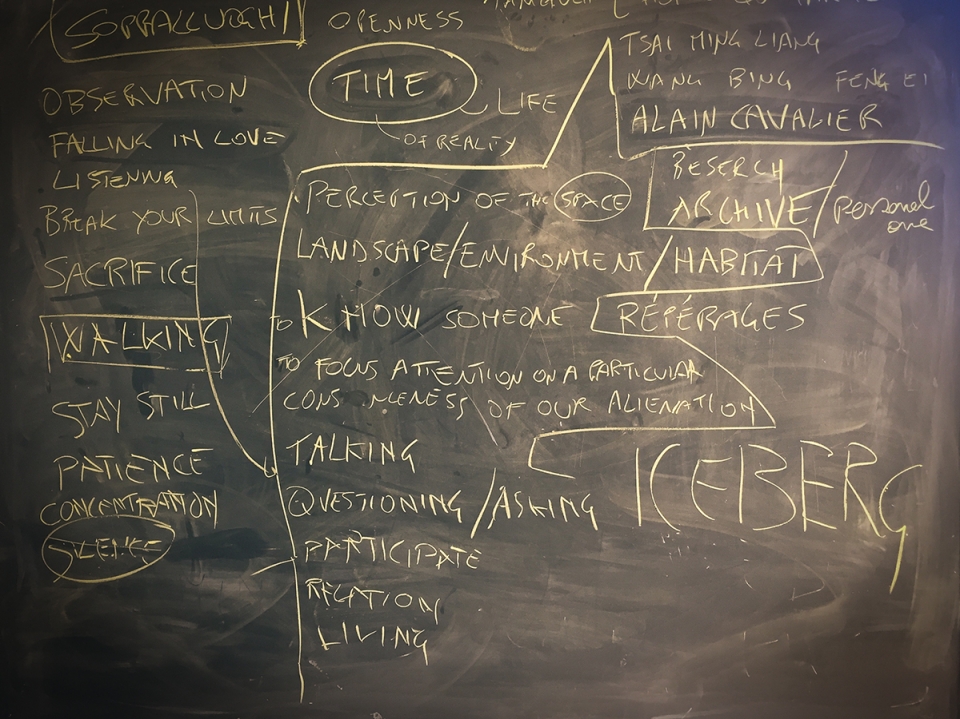 SOPRALLUOGHI
OPENNESS
TIME
LIFE
OF REALTY
TSAI MING LIANG
WANG BING
ALAIN CAVALIER
OBSERVATION
FALLING IN LOVE
LISTENING
BREAK YOUR LIMITS
SACRIFICE
WALKING
STAY STILL
PATIENCE
CONCENTRATION
SILENCE
PERCEPTION OF THE SPACE
RESERCH
ARCHIVE / Personal
one
LANDSCAPE/ENVIRONMENT / HABITAT
TO KNOW SOMEONE
RÉPÉRAGES
TO FOCUS ATTENTION ON A PARTICULAR
OF OUR ALIENATION
TALKING
ICEBERG
QUESTIONING /ASKING
PARTICIPATE
RELATION
LIVING